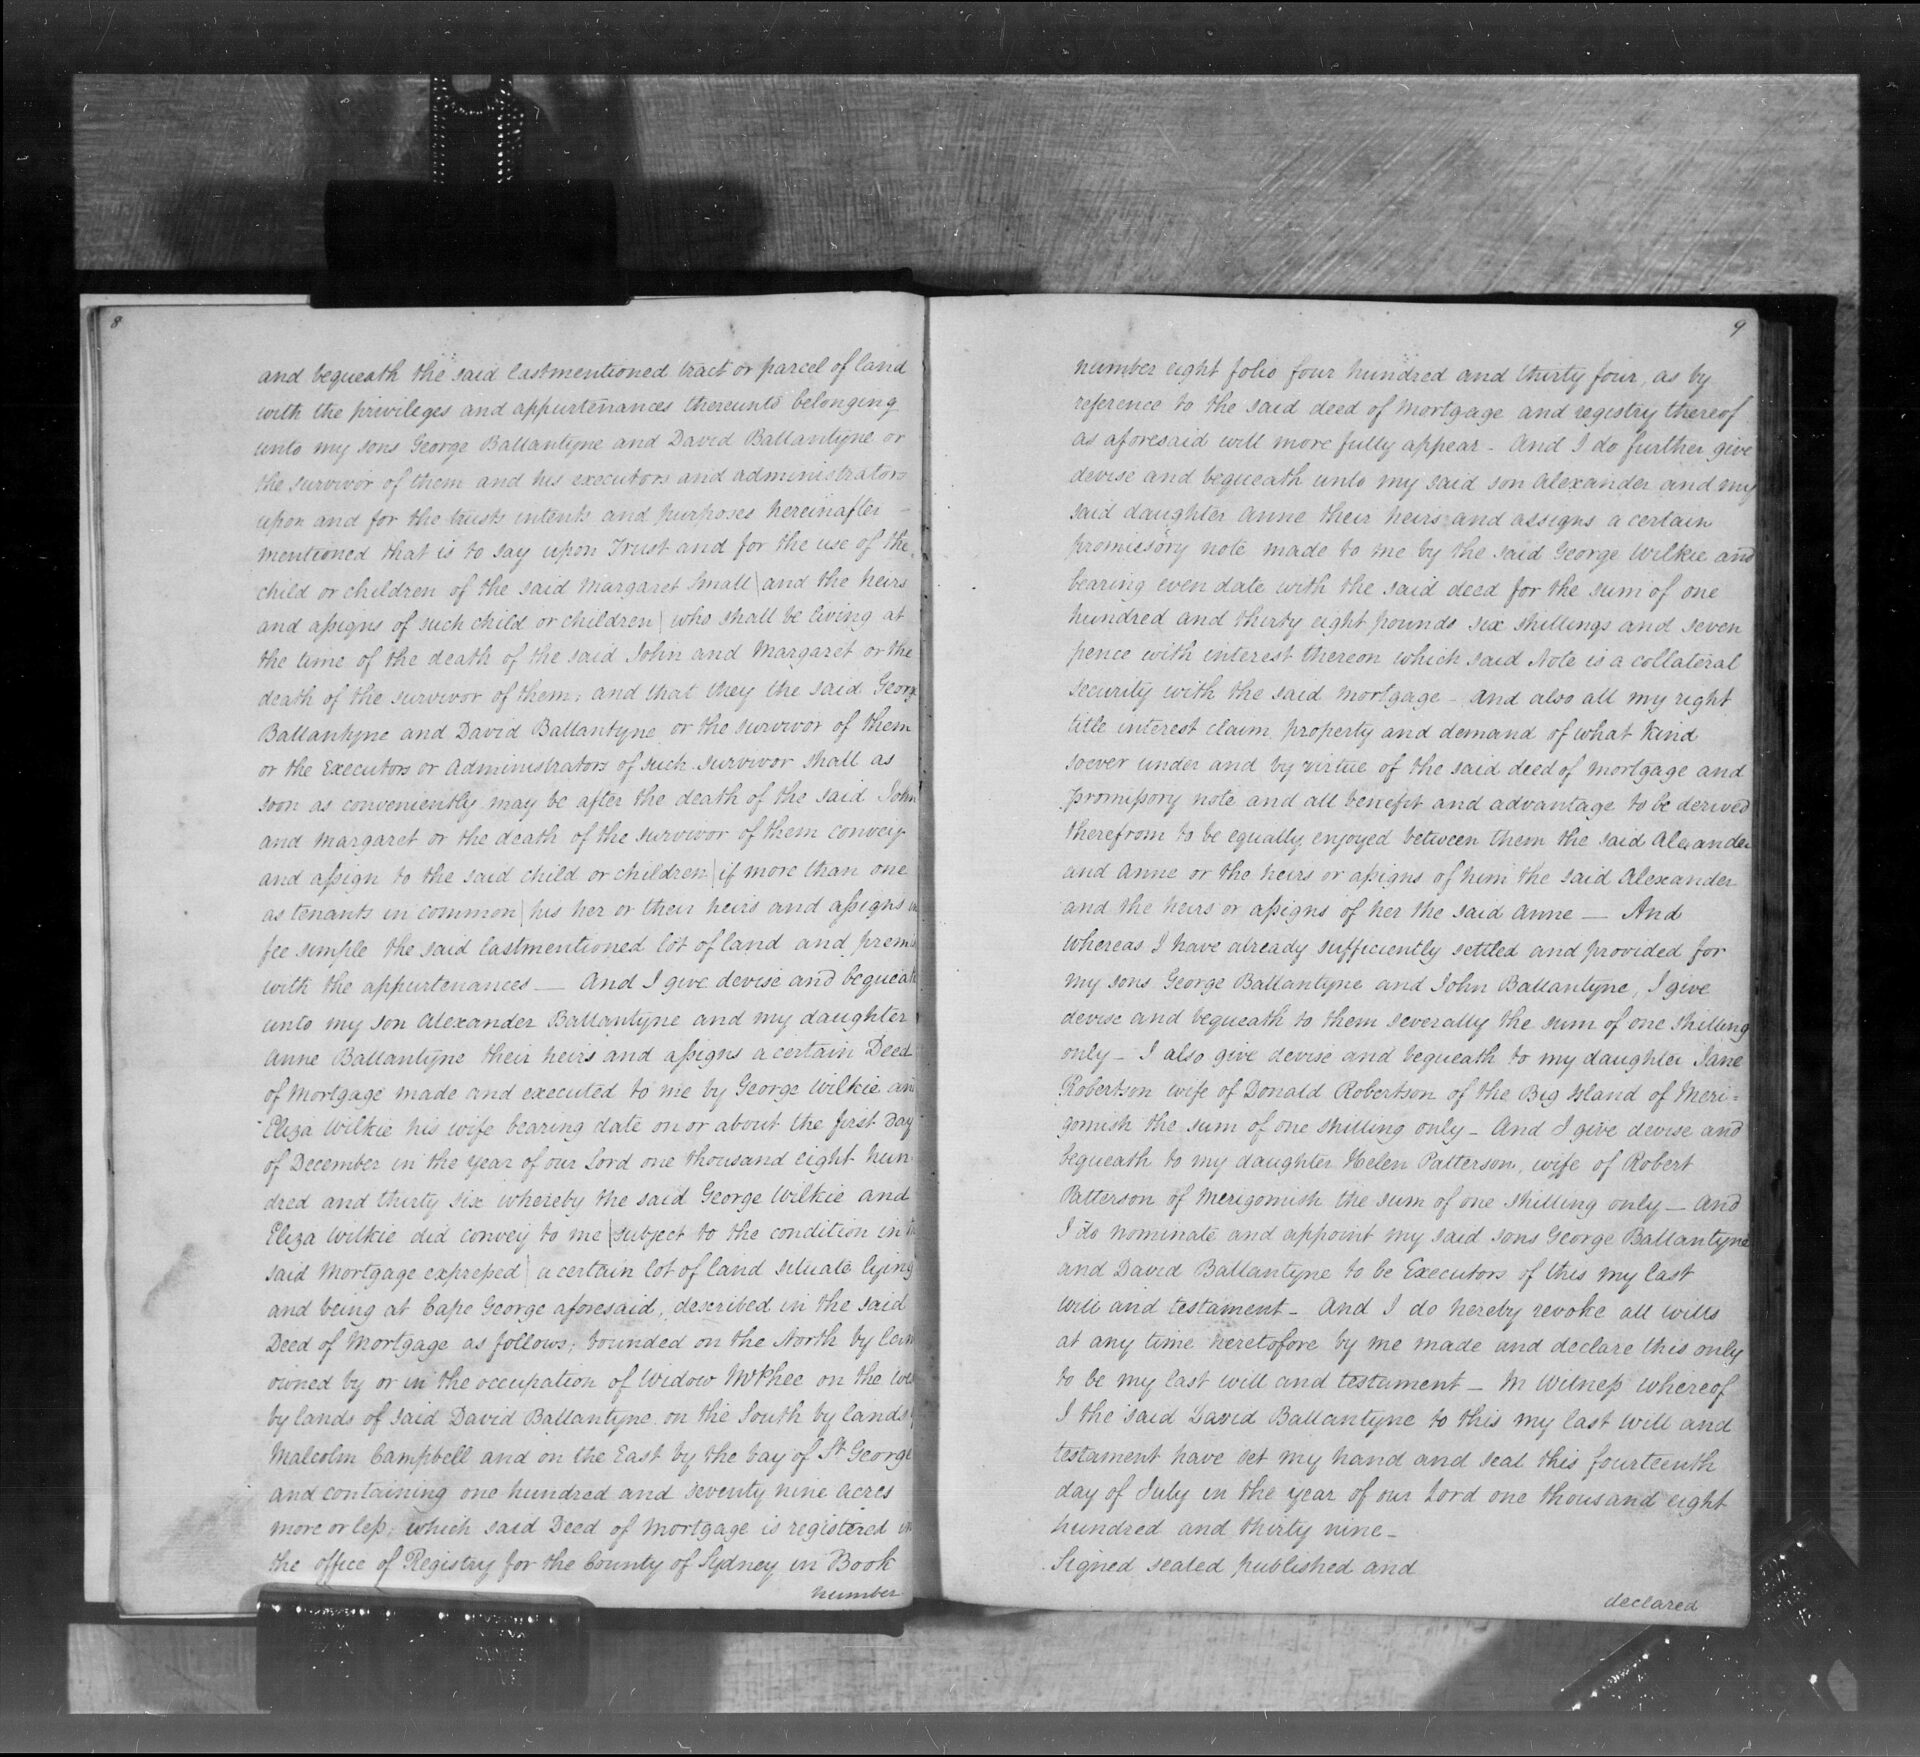 8
and bequeath the said lastmentioned tract or parcel of land
with the privileges and appurtenances thereunto belonging
unto my sons George Ballantyne and David Ballantyne or
the survivor of them and his executors and administrators
upon and for the trusts intents and purposes hereinafter –
mentioned that is to say upon Trust and for the use of the
child or children of the said Margaret Small | and the heirs
and assigns of such child or children | who shall be living at
the time of the death of the said John and Margaret or the
death of the survivor of them; and that they the said George
Ballantyne and David Ballantyne or the survivor of them
or the Executors or Administrators of such survivor shall as
soon as conveniently may be after the death of the said John
and Margaret or the death of the survivor of them convey
and assign to the said child or children | if more than one
as tenants in common | his her or their heirs and assigns in
fee simple the said lastmentioned lot of land and premis
with the appurtenances — And I give devise and bequeath
unto my son Alexander Ballantyne and my daughter
Anne Ballantyne their heirs and assigns a certain Deed
of Mortgage made and executed to me by George Wilkie and
Eliza Wilkie his wife bearing date on or about the first Day
of December in the year of our Lord one thousand eight hun
dred and thirty six whereby the said George Wilkie and
Eliza Wilkie did convey to me | subject to the condition in
said Mortgage expressed | a certain lot of land situate lying
and being at Cape George aforesaid, described in the said
Deed of Mortgage as follows; bounded on the North by lan
owned by or in the occupation of Widow McPhee on the We
by lands of said David Ballantyne on the South by lands
Malcolm Campbell and on the East by the bay of St George
and containing one hundred and seventy nine acres
more or less; which said Deed of Mortgage is registered in
the office of Registry for the County of Sydney in Book
number
9
number eight folio four hundred and thirty four, as by
reference to the said deed of Mortgage and registry thereof
as aforesaid will more fully appear – And I do further give
devise and bequeath unto my said son Alexander and my
said daughter Anne their heirs and assigns a certain
promissory note made to me by the said George Wilkie and
bearing even date with the said deed for the sum of one
hundred and thirty eight pounds six shillings and seven
pence with interest thereon which said Note is a collateral
security with the said Mortgage – and also all my right
title interest claim property and demand of what kind
soever under and by virtue of the said deed of Mortgage and
promissory note and all benefit and advantage to be derived
therefrom to be equally enjoyed between them the said Alexander
and Anne or the heirs or assigns of him the said Alexander
and the heirs or assigns of her the said Anne — And
whereas I have already sufficiently settled and provided for
my sons George Ballantyne and John Ballantyne, I give
devise and bequeath to them severally the sum of one shilling
only – I also give devise and bequeath to my daughter Jane
Robertson wife of Donald Robertson of the Big Island of Meri=
gomish the sum of one shilling only – And I give devise and
bequeath to my daughter Helen Patterson, wife of Robert
Patterson of Merigomish the sum of one shilling only – And
I do nominate and appoint my said sons George Ballantyne
and David Ballantyne to be Executors of this my last
will and testament – And I do hereby revoke all wills
at any time heretofore by me made and declare this only
to be my last will and testament – In Witness whereof
I the said David Ballantyne to this my last will and
testament have set my hand and seal this fourteenth
day of July in the year of our Lord one thousand eight
hundred and thirty nine –
Signed sealed published and
declared